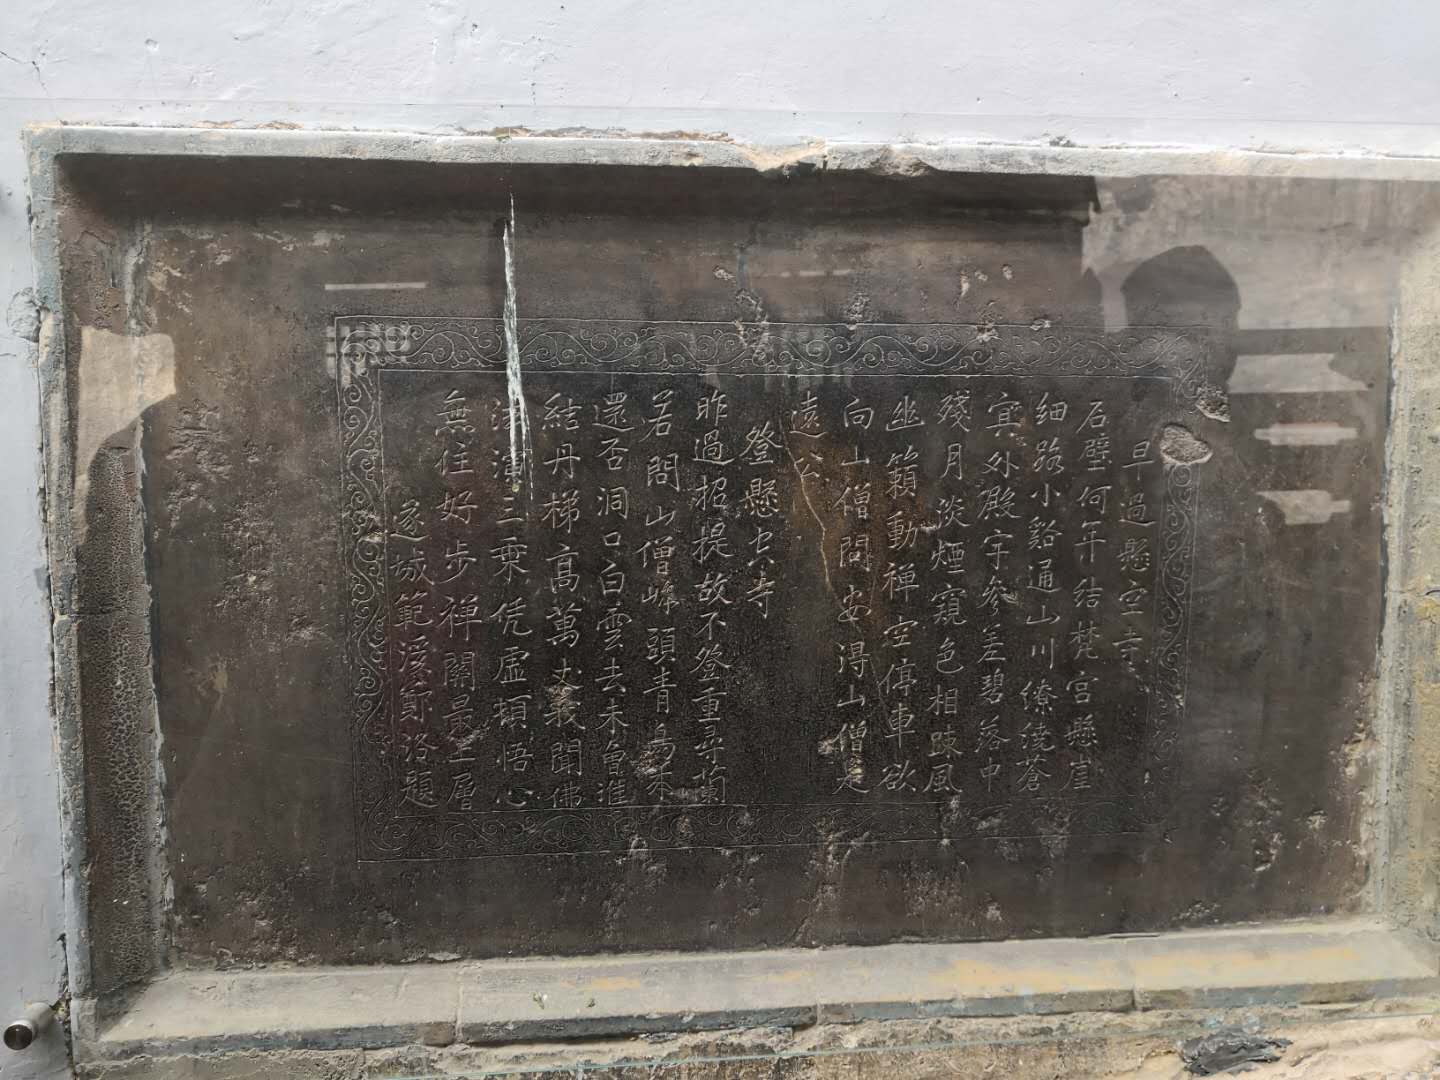 早過懸空寺
石壁何年結梵宮懸崖
细路小谿通山川繚繞蒼
㝠外殿宇參差碧落中
殘月淡煙窺色相踈風
幽籟動禅空停車欲
向山僧問安淂山僧是
遠公
登懸空寺
昨過招提故不登重尋蘭
若問山僧峰頭青鳥来
還否洞口白雲去未曾準
結丹梯髙萬丈我聞佛
法演三乗凭虚頓悟心
無住好步禅關最上層
遂城範溪鄭洛題